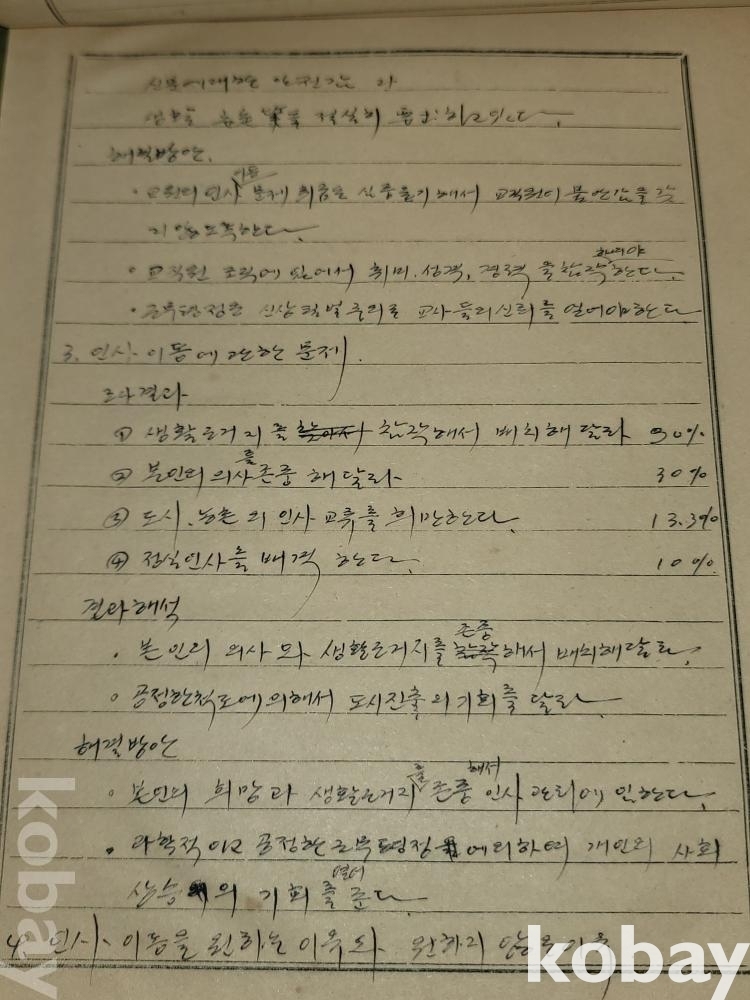 신분에 대한 안전감과
을 절실히 통감하고 있다.
해결방안.
· 교원의 인사 이동 문제 취급을 신중을 기해서 교직원이 불안감을 갖
지 않도록 한다.
· 교직원 조직에 있어서 취미, 성격, 경력을 참작 하여야 한다.
· 근무평정은 신상필벌주의로 교사들의 신뢰를 얻어야 한다
3. 인사 이동에 관한 문제.
조사결과
① 생활근거지를 참작해서 배치해 달라 90%
② 본인의 의사를 존중해 달라 30%
③ 도시.농촌의 인사교류를 희망한다. 13.3%
④ 정실인사를 배격한다. 10%
결과해석
· 본인의 의사와 생활근거지를 존중해서 배치해달라.
· 공정한 척도에 의해서 도시진출의 기회를 달라.
해결방안
· 본인의 희망과 생활근거지를 존중해서 인사관리에 임한다.
· 과학적이고 공정한 근무평정에 의하여 개인의 사회
상승의 기회를 열어준다.
4. 인사 이동을 원하는 이유와 원하지 않는 이유
kobay
kobay